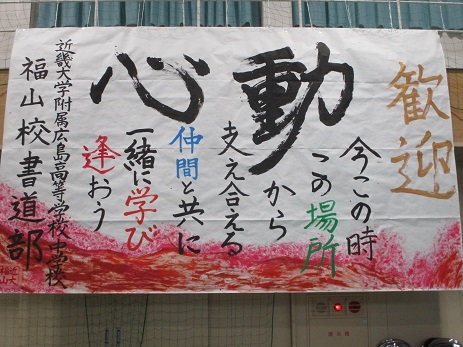 歓迎
心動
今この時
この場所
から
支え合える
仲間と共に
一緒に学び
逢おう
近畿大学附属広島高等学校中学校
福山校書道部